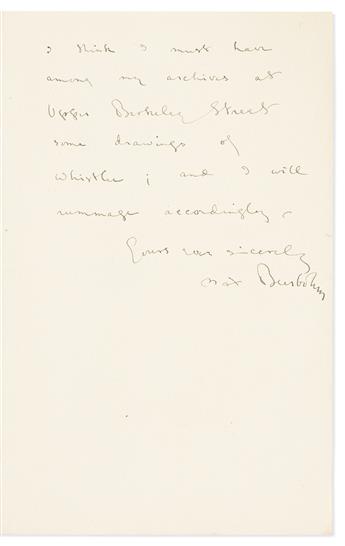 I think I must have
among my archives at
Upper Berkeley Street
some drawings of
Whistler ; and I will
rummage accordingly.
Yours very sincerely
Max Beerbohm